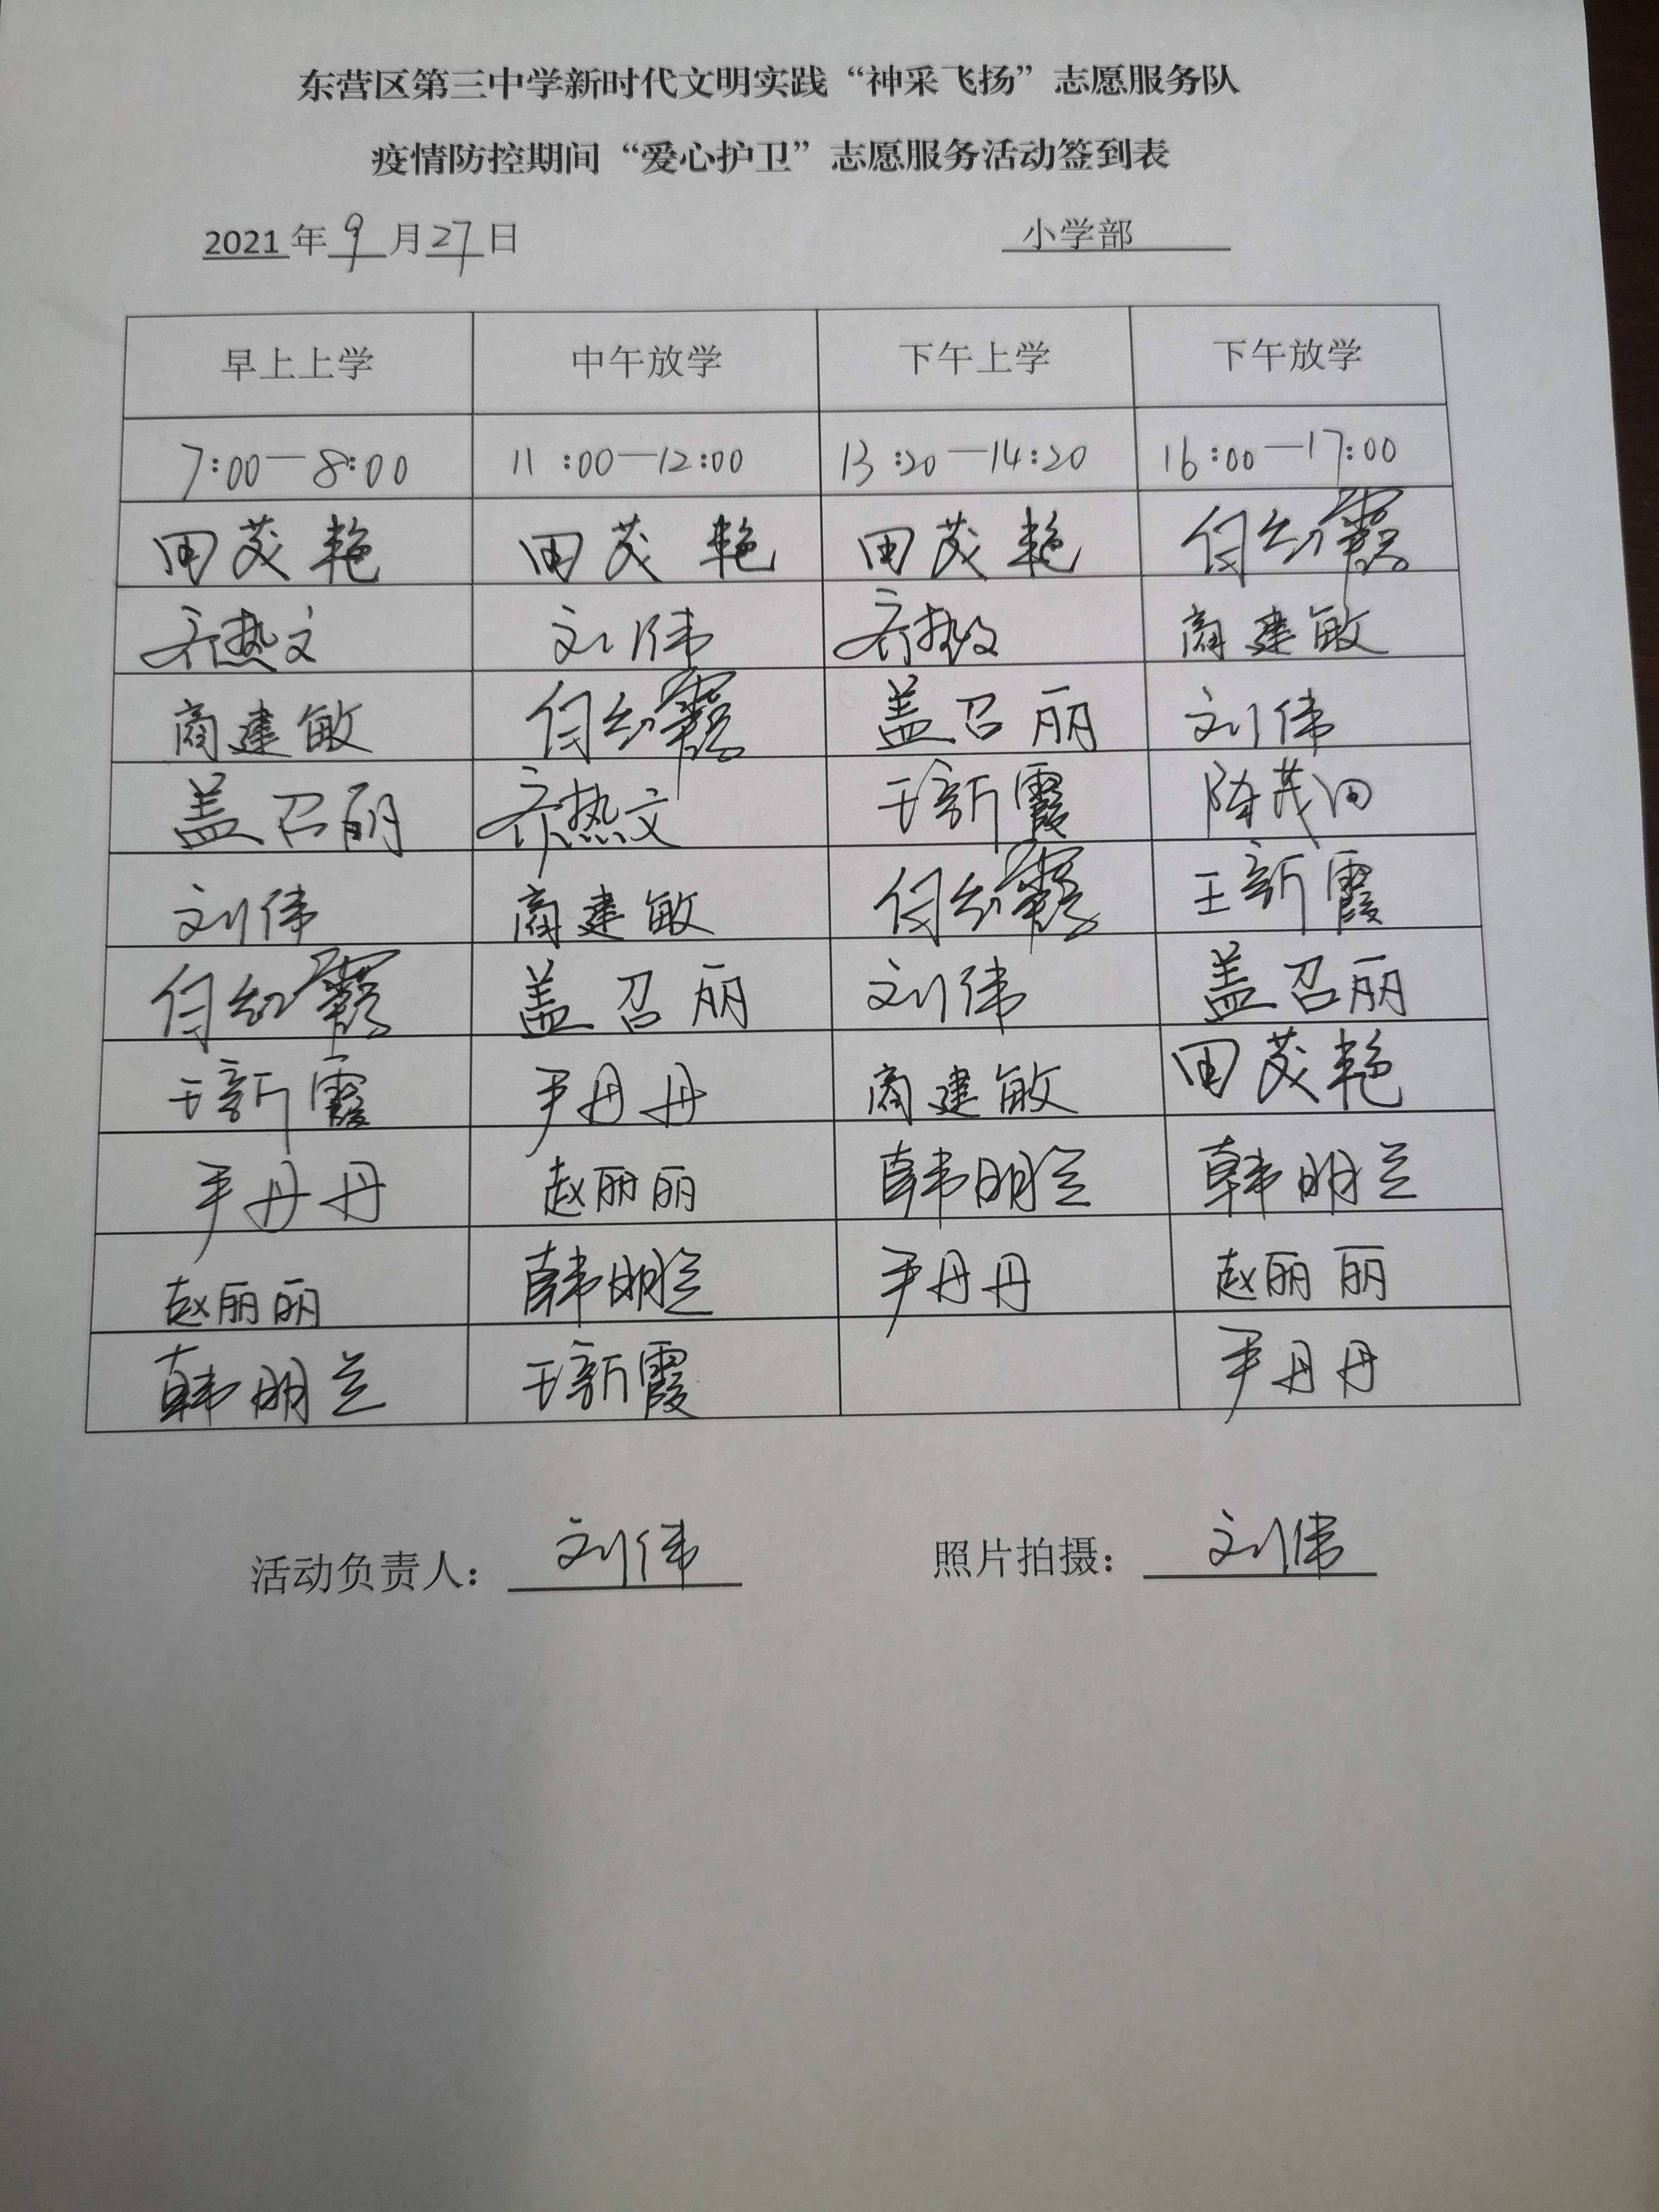 东营区第三中学新时代文明实践“神采飞扬”志愿服务队
疫情防控期间“爱心护卫”志愿服务活动签到表
2021年9月27日 小学部
早上上学 中午放学 下午上学 下午放学
7:00—8:00 11:00—12:00 13:20—14:20 16:00—17:00
田茂艳 田茂艳 田茂艳
齐热文 刘伟 齐热文 商建敏
商建敏 盖召丽 刘伟
盖召丽 齐热文 王新霞 陈茂田
刘伟 商建敏 王新霞
盖召丽 刘伟 盖召丽
王新霞 尹丹丹 商建敏 田茂艳
尹丹丹 赵丽丽 韩明兰 韩明兰
赵丽丽 韩明兰 尹丹丹 赵丽丽
韩明兰 王新霞 尹丹丹
活动负责人：刘伟 照片拍摄：刘伟